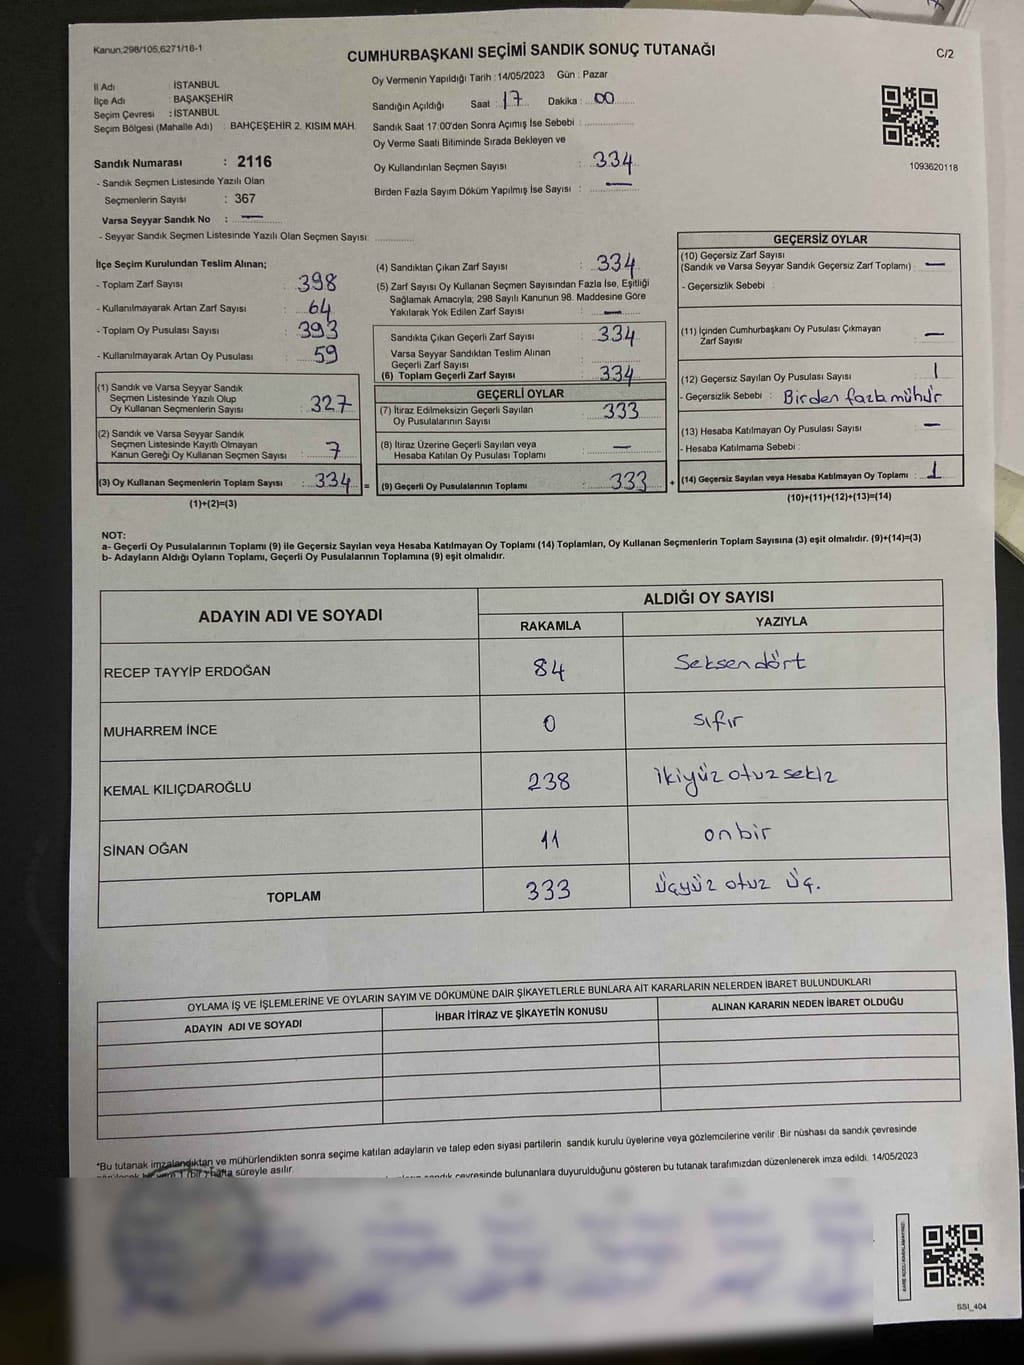 Kanun,298/105,6271/16-1
CUMHURBAŞKANI SEÇİMİ SANDIK SONUÇ TUTANAĞI
C/2
İl Adı : İSTANBUL
İlçe Adı : BAŞAKŞEHİR
Seçim Çevresi : İSTANBUL
Seçim Bölgesi (Mahalle Adı) : BAHÇEŞEHİR 2. KISIM MAH.
Sandık Numarası : 2116
- Sandık Seçmen Listesinde Yazılı Olan
Seçmenlerin Sayısı : 367
Varsa Seyyar Sandık No : —
- Seyyar Sandık Seçmen Listesinde Yazılı Olan Seçmen Sayısı: ..............
Oy Vermenin Yapıldığı Tarih : 14/05/2023 Gün : Pazar
Sandığın Açıldığı Saat : 17 Dakika : 00
Sandık Saat 17:00'den Sonra Açımış İse Sebebi : ..............
Oy Verme Saati Bitiminde Sırada Bekleyen ve
Oy Kullandırılan Seçmen Sayısı : 334
Birden Fazla Sayım Döküm Yapılmış İse Sayısı : —
1093620118
İlçe Seçim Kurulundan Teslim Alınan;
- Toplam Zarf Sayısı : 398
- Kullanılmayarak Artan Zarf Sayısı : 64
- Toplam Oy Pusulası Sayısı : 393
- Kullanılmayarak Artan Oy Pusulası : 59
(1) Sandık ve Varsa Seyyar Sandık
Seçmen Listesinde Yazılı Olup
Oy Kullanan Seçmenlerin Sayısı : 327
(2) Sandık ve Varsa Seyyar Sandık
Seçmen Listesinde Kayıtlı Olmayan
Kanun Gereği Oy Kullanan Seçmen Sayısı : 7
(3) Oy Kullanan Seçmenlerin Toplam Sayısı : 334 =
(1)+(2)=(3)
(4) Sandıktan Çıkan Zarf Sayısı : 334
(5) Zarf Sayısı Oy Kullanan Seçmen Sayısından Fazla İse, Eşitliği
Sağlamak Amacıyla; 298 Sayılı Kanunun 98. Maddesine Göre
Yakılarak Yok Edilen Zarf Sayısı : —
Sandıkta Çıkan Geçerli Zarf Sayısı : 334
Varsa Seyyar Sandıktan Teslim Alınan
Geçerli Zarf Sayısı : ..............
(6) Toplam Geçerli Zarf Sayısı : 334
GEÇERLİ OYLAR
(7) İtiraz Edilmeksizin Geçerli Sayılan
Oy Pusulalarının Sayısı : 333
(8) İtiraz Üzerine Geçerli Sayılan veya
Hesaba Katılan Oy Pusulası Toplamı : —
(9) Geçerli Oy Pusulalarının Toplamı : 333 +
GEÇERSİZ OYLAR
(10) Geçersiz Zarf Sayısı
(Sandık ve Varsa Seyyar Sandık Geçersiz Zarf Toplamı) : —
- Geçersizlik Sebebi :
(11) İçinden Cumhurbaşkanı Oy Pusulası Çıkmayan
Zarf Sayısı : —
(12) Geçersiz Sayılan Oy Pusulası Sayısı : 1
- Geçersizlik Sebebi : Birden fazla mühür
(13) Hesaba Katılmayan Oy Pusulası Sayısı : —
- Hesaba Katılmama Sebebi :
(14) Geçersiz Sayılan veya Hesaba Katılmayan Oy Toplamı : 1
(10)+(11)+(12)+(13)=(14)
NOT:
a- Geçerli Oy Pusulalarının Toplamı (9) ile Geçersiz Sayılan veya Hesaba Katılmayan Oy Toplamı (14) Toplamları, Oy Kullanan Seçmenlerin Toplam Sayısına (3) eşit olmalıdır. (9)+(14)=(3)
b- Adayların Aldığı Oyların Toplamı, Geçerli Oy Pusulalarının Toplamına (9) eşit olmalıdır.
ADAYIN ADI VE SOYADI
ALDIĞI OY SAYISI
RAKAMLA YAZIYLA
RECEP TAYYİP ERDOĞAN 84 Seksendört
MUHARREM İNCE 0 sıfır
KEMAL KILIÇDAROĞLU 238 ikiyüz otuz sekiz
SİNAN OĞAN 11 onbir
TOPLAM 333 üçyüz otuz üç.
OYLAMA İŞ VE İŞLEMLERİNE VE OYLARIN SAYIM VE DÖKÜMÜNE DAİR ŞİKAYETLERLE BUNLARA AİT KARARLARIN NELERDEN İBARET BULUNDUKLARI
ADAYIN ADI VE SOYADI İHBAR İTİRAZ VE ŞİKAYETİN KONUSU ALINAN KARARIN NEDEN İBARET OLDUĞU
*Bu tutanak imzalandıktan ve mühürlendikten sonra seçime katılan adayların ve talep eden siyasi partilerin sandık kurulu üyelerine veya gözlemcilerine verilir. Bir nüshası da sandık çevresinde
görülecek bir yere 1 (bir) hafta süreyle asılır.
sandık çevresinde bulunanlara duyurulduğunu gösteren bu tutanak tarafımızdan düzenlenerek imza edildi. 14/05/2023
SSI_404